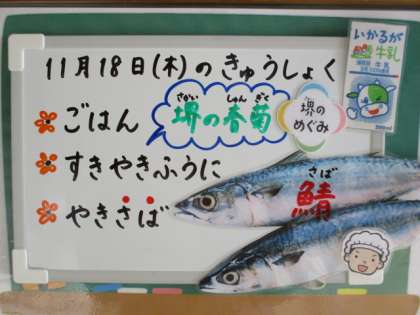 11月18日(木)のきゅうしょく
ごはん
さかい しゅんぎく
堺の春菊
堺の
めぐみ
すきやきふうに
やきさば
さば
鯖
いかるが
牛乳